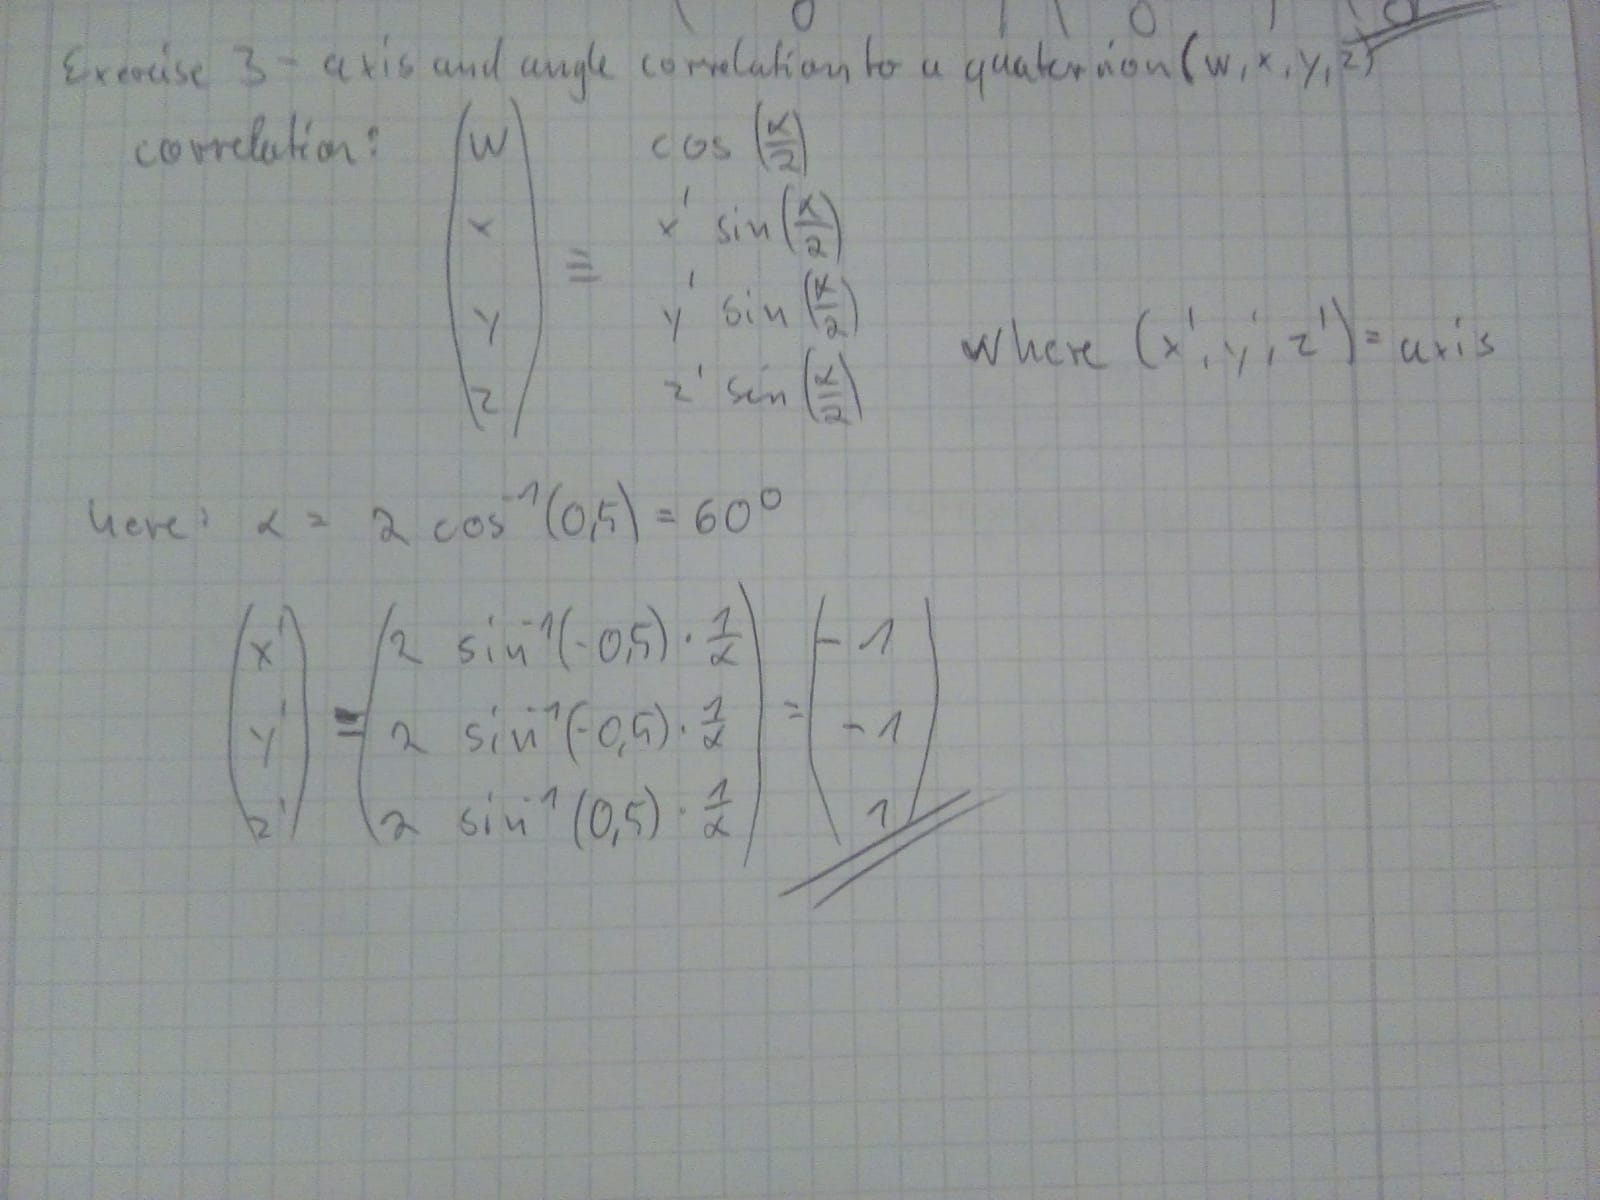 Exercise 3 - axis and angle correlation to a quaternion (w, x, y, z)
correlation: (w x y z) ≡ cos (α/2)
x' sin (α/2)
y' sin (α/2)
z' sin (α/2)
where (x', y', z') = axis
here: α = 2 cos⁻¹(0,5) = 60°
(x' y' z') = (2 sin⁻¹(-0,5) · 1/α
2 sin⁻¹(-0,5) · 1/α
2 sin⁻¹(0,5) · 1/α) = (-1 -1 1)